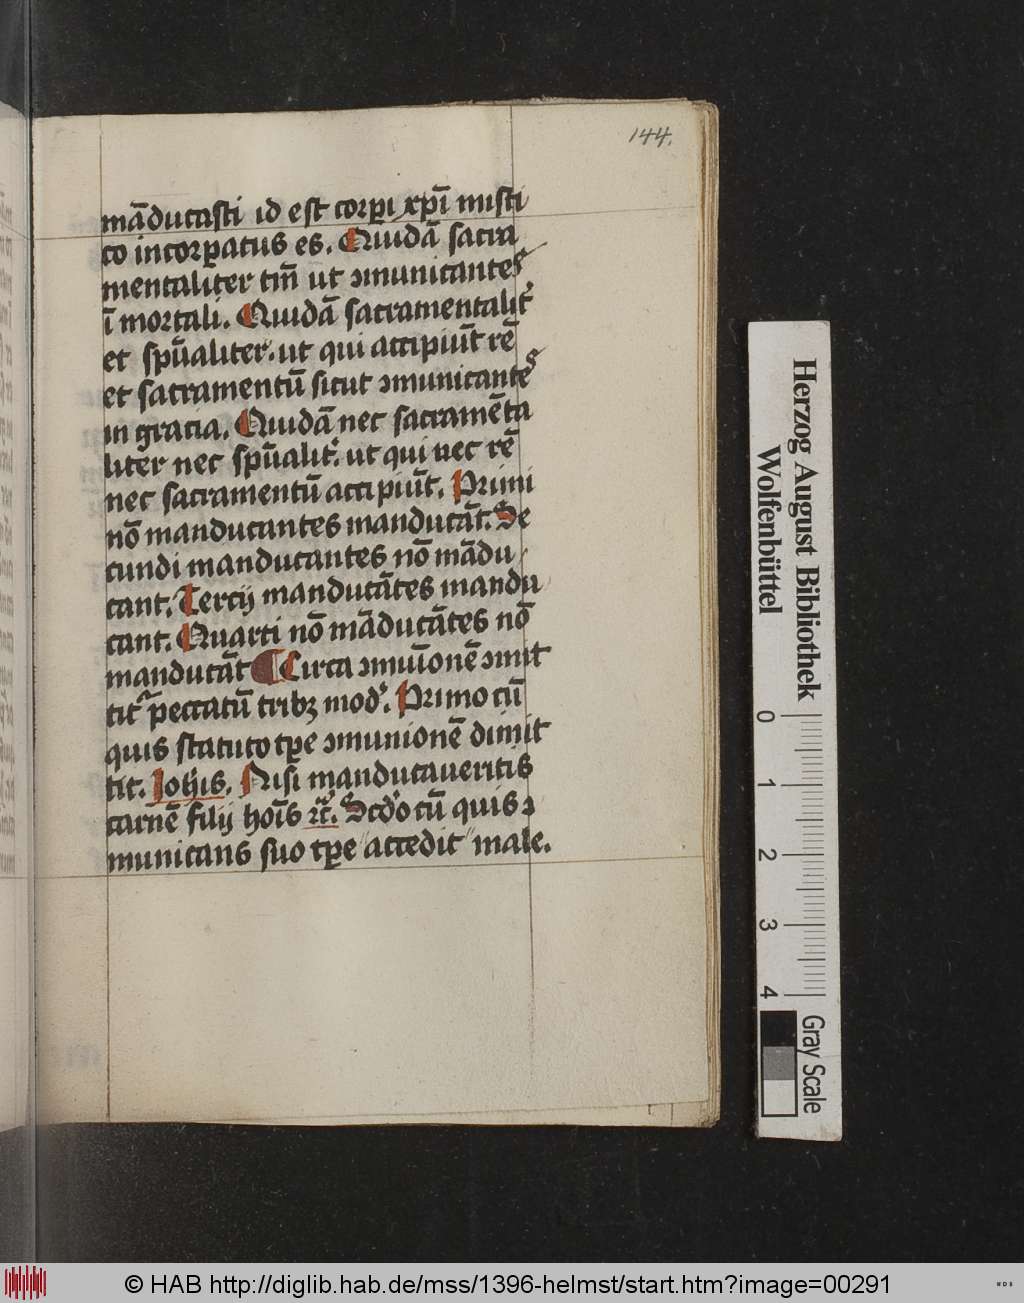 144.
mā̄ducasti id est corꝑi xp̄i misti
co incorꝑatus es. Quidā sacra
mentaliter tm̄ ut ꝯmunicantes
ī mortali. Quidā sacramentalit᷑
et sp̄ualiter. ut qui accipiūt rē
et sacramentū sicut ꝯmunicantes
in gracia. Quidā nec sacramēta
liter nec sp̄ualit᷑. ut qui nec rē
nec sacramentū accipiūt. Primi
nō manducantes manducāt. Se
cundi manducantes nō mādu
cant. Tercij manducātes mandu
cant. Quarti nō māducātes nō
manducāt ¶ Circa ꝯmuīonē ꝯmit
tit᷑ peccatū tribꝫ mod᷒. Primo cū
quis statuto tꝑe ꝯmunionē dimit
tit. Ioh̄is. Nisi manducaveritis
carnē filij hoīs ⁊c̄. Scd̓o cū quis ꝯ
municans suo tꝑe "accedit" male.
Herzog August Bibliothek
Wolfenbüttel
0 1 2 3 4
Gray Scale
© HAB http://diglib.hab.de/mss/1396-helmst/start.htm?image=00291